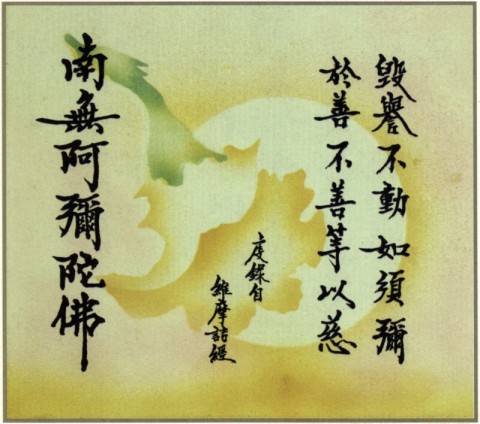 毀譽不動如須彌
於善不善等以慈
度錄自
維摩詰經
南無阿彌陀佛